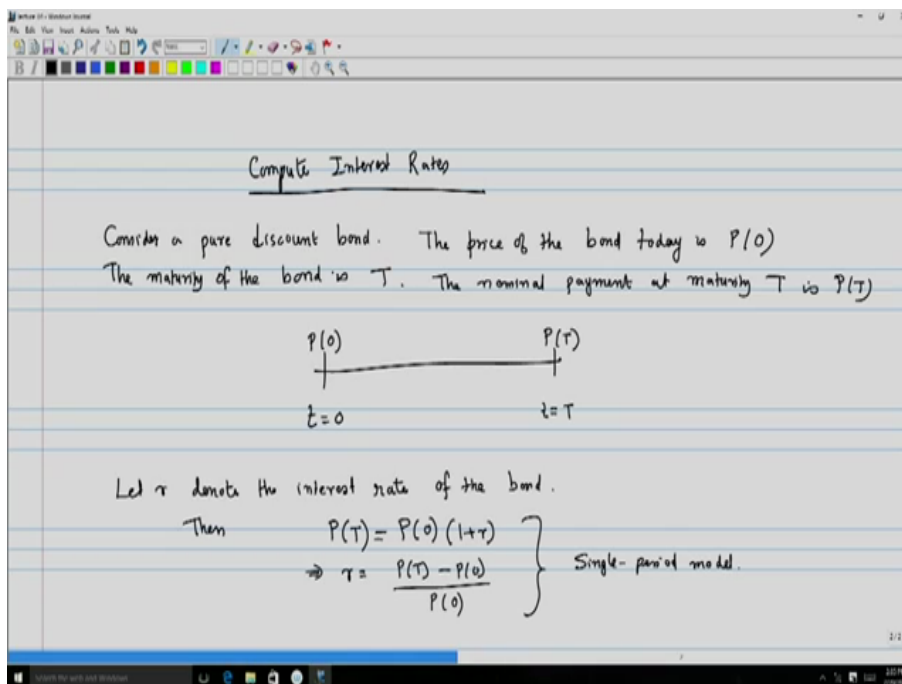 lecture 01 - Windows Journal
File Edit View Insert Actions Tools Help
B I
Compute Interest Rates
Consider a pure discount bond. The price of the bond today is P(0)
The maturity of the bond is T. The nominal payment at maturity T is P(T)
P(0) P(T)
t=0 t=T
Let r denote the interest rate of the bond.
Then P(T) = P(0) (1+r)
⇒ r = P(T) - P(0) / P(0)
Single-period model.
2/2
Search the web and Windows